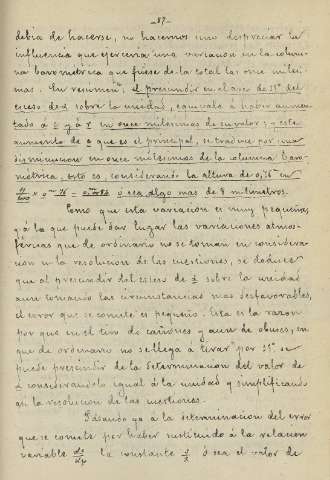 -87-
debia de hacerse, no hacemos sino despreciar la
influencia que ejerceria una variacion en la colum-
na barometrica que fuese de la total las once milesi-
mas. En resumen, el prescindir en el arco de 11° del
exceso de α sobre la unidad, equivale á haber aumen-
tado á c y á r en once milesimas de su valor; y este
aumento de c que es el principal, se traduce por una
disminucion en once milesimas de la columna baro-
metrica, esto es, considerando la altura de 0,76 en
11/1000 × 0,76 = ó sea algo mas de 8 milimetros.
Como que esta variacion es muy pequeña,
y á la que puede dar lugar las variaciones atmos-
fericas que de ordinario no se toman en considera-
cion en la resolucion de las cuestiones, se deduce
que al prescindir del exceso de α sobre la unidad
aun tomando las circunstancias mas desfavorables,
el error que se comete es pequeño. Esta es la razon
por que en el tiro de cañones y aun de obuses, en
que de ordinario no se llega á tirar por 11° se
puede prescindir de la determinacion del valor de
α considerandolo igual á la unidad y simplificando
asi la resolucion de las cuestiones.
Pasando ya á la determinacion del error
que se comete por haber sustituido á la relacion
variable la constante ó sea el valor de